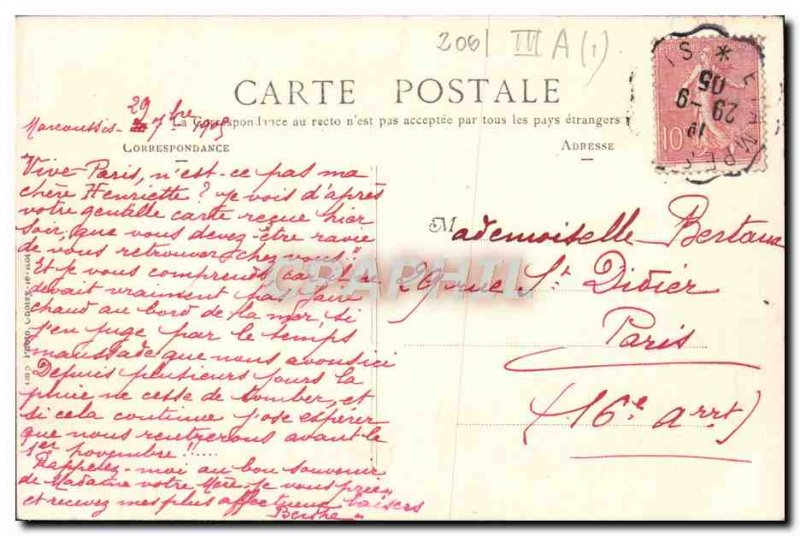 2061 III A (1)
CARTE POSTALE
La Correspondance au recto n'est pas acceptée par tous les pays étrangers
Marcoussis 29 7bre 1905
CORRESPONDANCE
ADRESSE
Vive Paris, n'est-ce pas ma
chère Henriette ? Je vois d'après
votre gentille carte reçue hier
soir, que vous devez être ravie
de vous retrouver "chez vous"!
Et je vous comprends car il ne
devait vraiment pas faire
chaud au bord de la mer, si
j'en juge par le temps
maussade que nous avons ici
Depuis plusieurs jours la
pluie ne cesse de tomber, et
si cela continue j'ose espérer
que nous rentrerons avant le
1er novembre !!....
Rappelez-moi au bon souvenir
de Madame votre Mère. Je vous prie
et recevez mes plus affectueux baisers
Berthe
Mademoiselle Bertaux
29 rue St Didier
Paris
(16e arrt)
10
ETAMPES
29-9
05
CPAPHIL